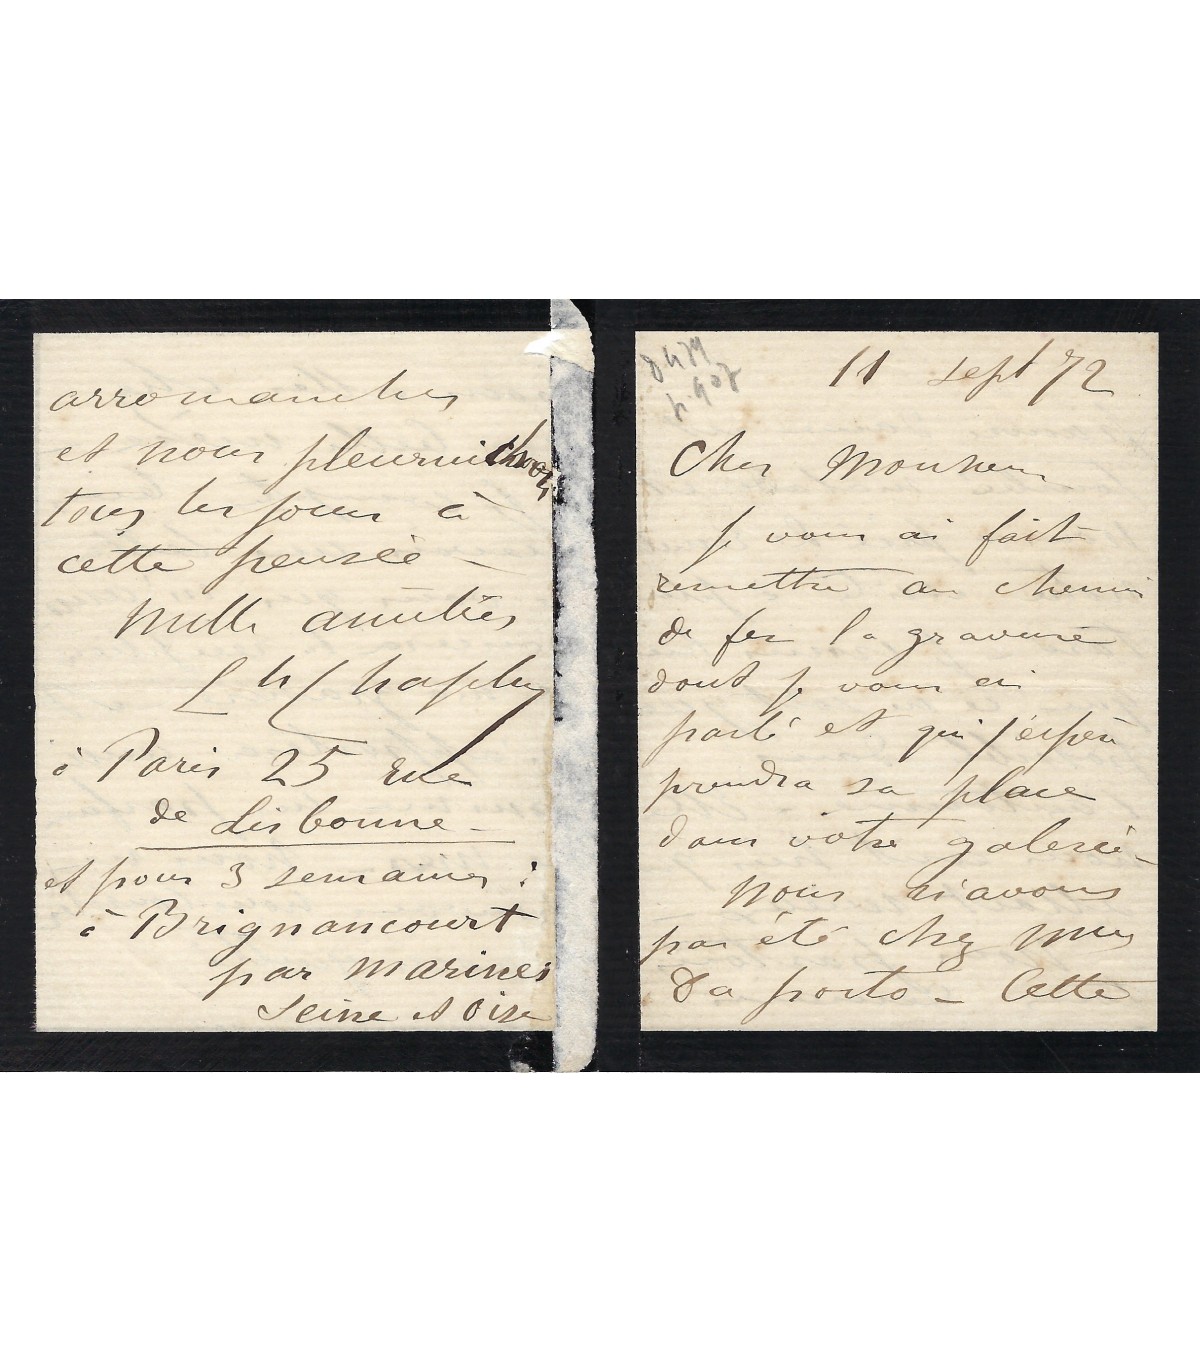 11 sept 72
Cher Monsieur
Je vous ai fait
remettre au chemin
de fer la gravure
dont je vous ai
parlé et qui j'espère
prendra sa place
dans votre galerie –
Nous n'avons
pas été chez Mme
Da porto – Cette
arromanches
et nous pleurnichons
tous les jours à
cette pensée –
Mille amitiés
Ch Chaplin
à Paris 25 rue
de Lisbonne –
et pour 3 semaines :
à Brignancourt
par Marines
Seine et Oise